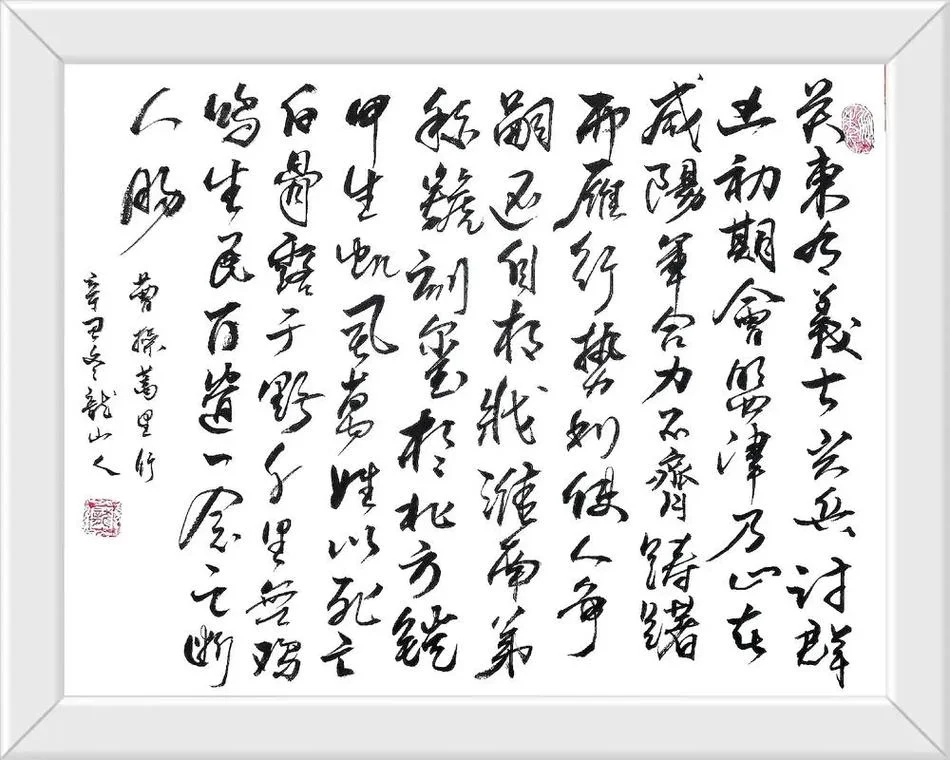 关東有義士兴兵討群
凶初期會盟津乃心在
咸陽軍合力不齊躊躇
而雁行勢利使人争
嗣还自相戕淮南弟
称號刻玺於北方鎧
甲生虮虱萬姓以死亡
白骨露于野千里無鸡
鸣生民百遺一念之断
人腸
曹操蒿里行
辛丑冬龍山人